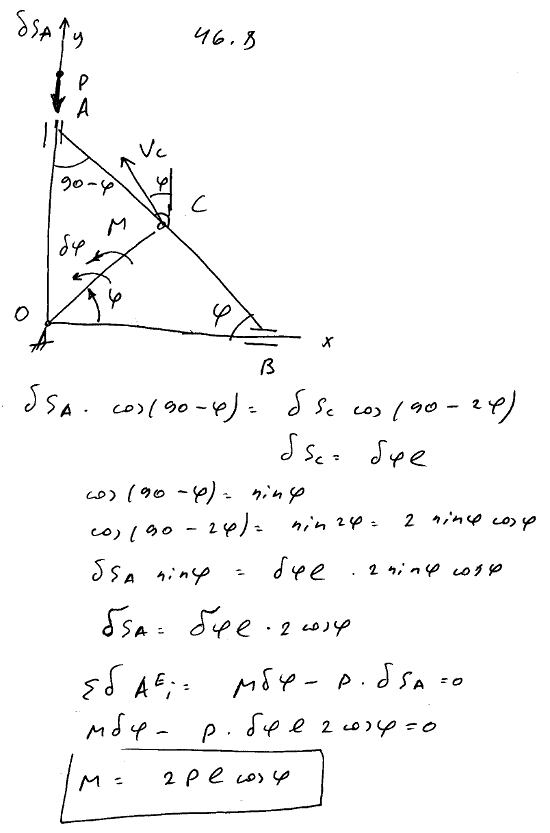 δSA y 46.8
P
A
Vc
90-φ φ C
M
δφ
φ
O φ x
B
δSA · cos(90-φ) = δSc cos(90-2φ)
δSc = δφl
cos(90-φ) = sinφ
cos(90-2φ) = sin2φ = 2 sinφ cosφ
δSA sinφ = δφl · 2 sinφ cosφ
δSA = δφl · 2 cosφ
Σδ A^E_i = Mδφ - P · δSA = 0
Mδφ - P · δφ l 2 cosφ = 0
M = 2Pl cosφ